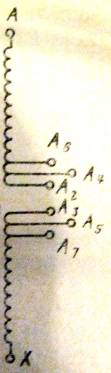 A
A6
A4
A2
A3
A5
A7
X